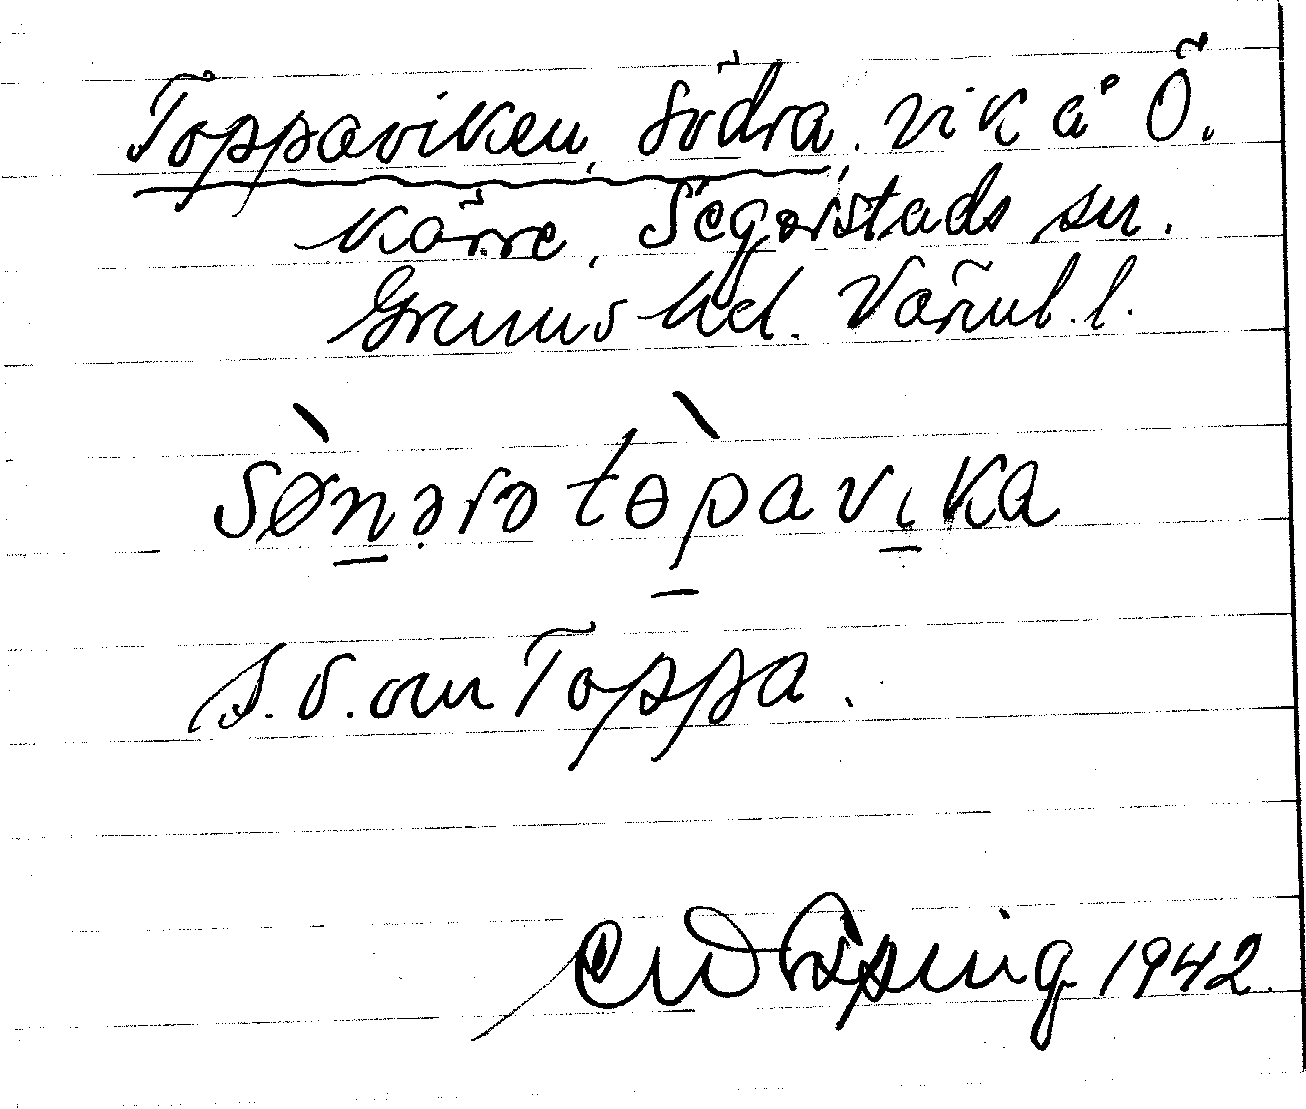 Toppaviken, Södra, vik å Ö.
Kärre, Segerstads sn.
Grums hd. Värml. l.
sønəra tɵpavika
s. o. om Toppa.
1942